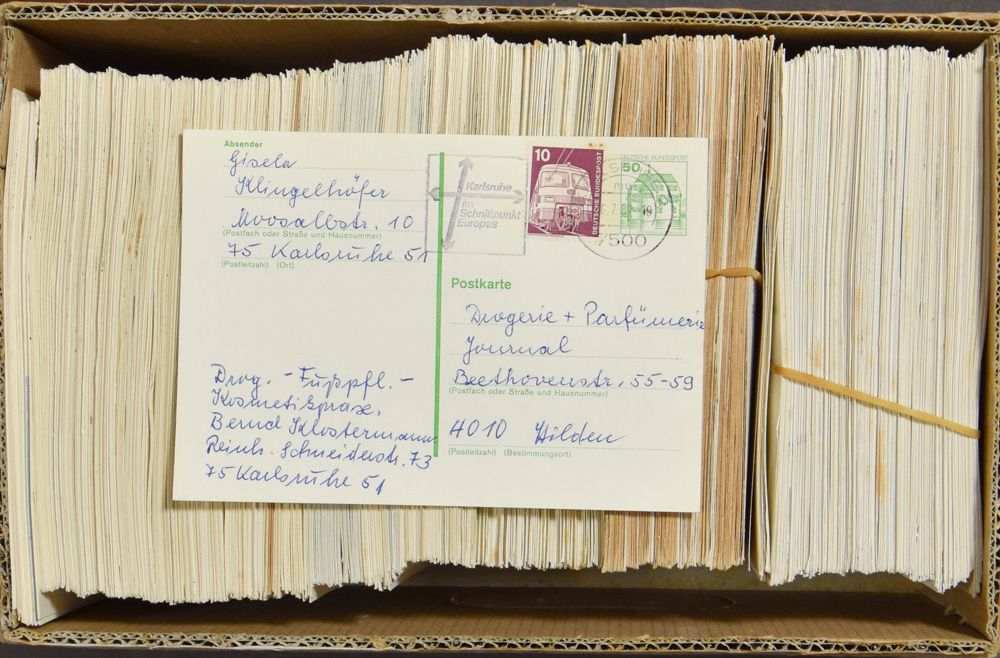 Absender
Gisela
Klingelhöfer
Moosalbstr. 10
(Postfach oder Straße und Hausnummer)
75 Karlsruhe 51
(Postleitzahl) (Ort)
Karlsruhe
Im
Schnittpunkt
Europas
10
DEUTSCHE BUNDESPOST
DEUTSCHE BUNDESPOST
50
7500
Postkarte
Drogerie + Parfümerie
Journal
Beethovenstr. 55-59
(Postfach oder Straße und Hausnummer)
4010 Hilden
(Postleitzahl) (Bestimmungsort)
Drog. - Fußpfl. -
Kosmetikprax.
Bernd Klostermann
Reinh. Schneiderstr. 73
75 Karlsruhe 51